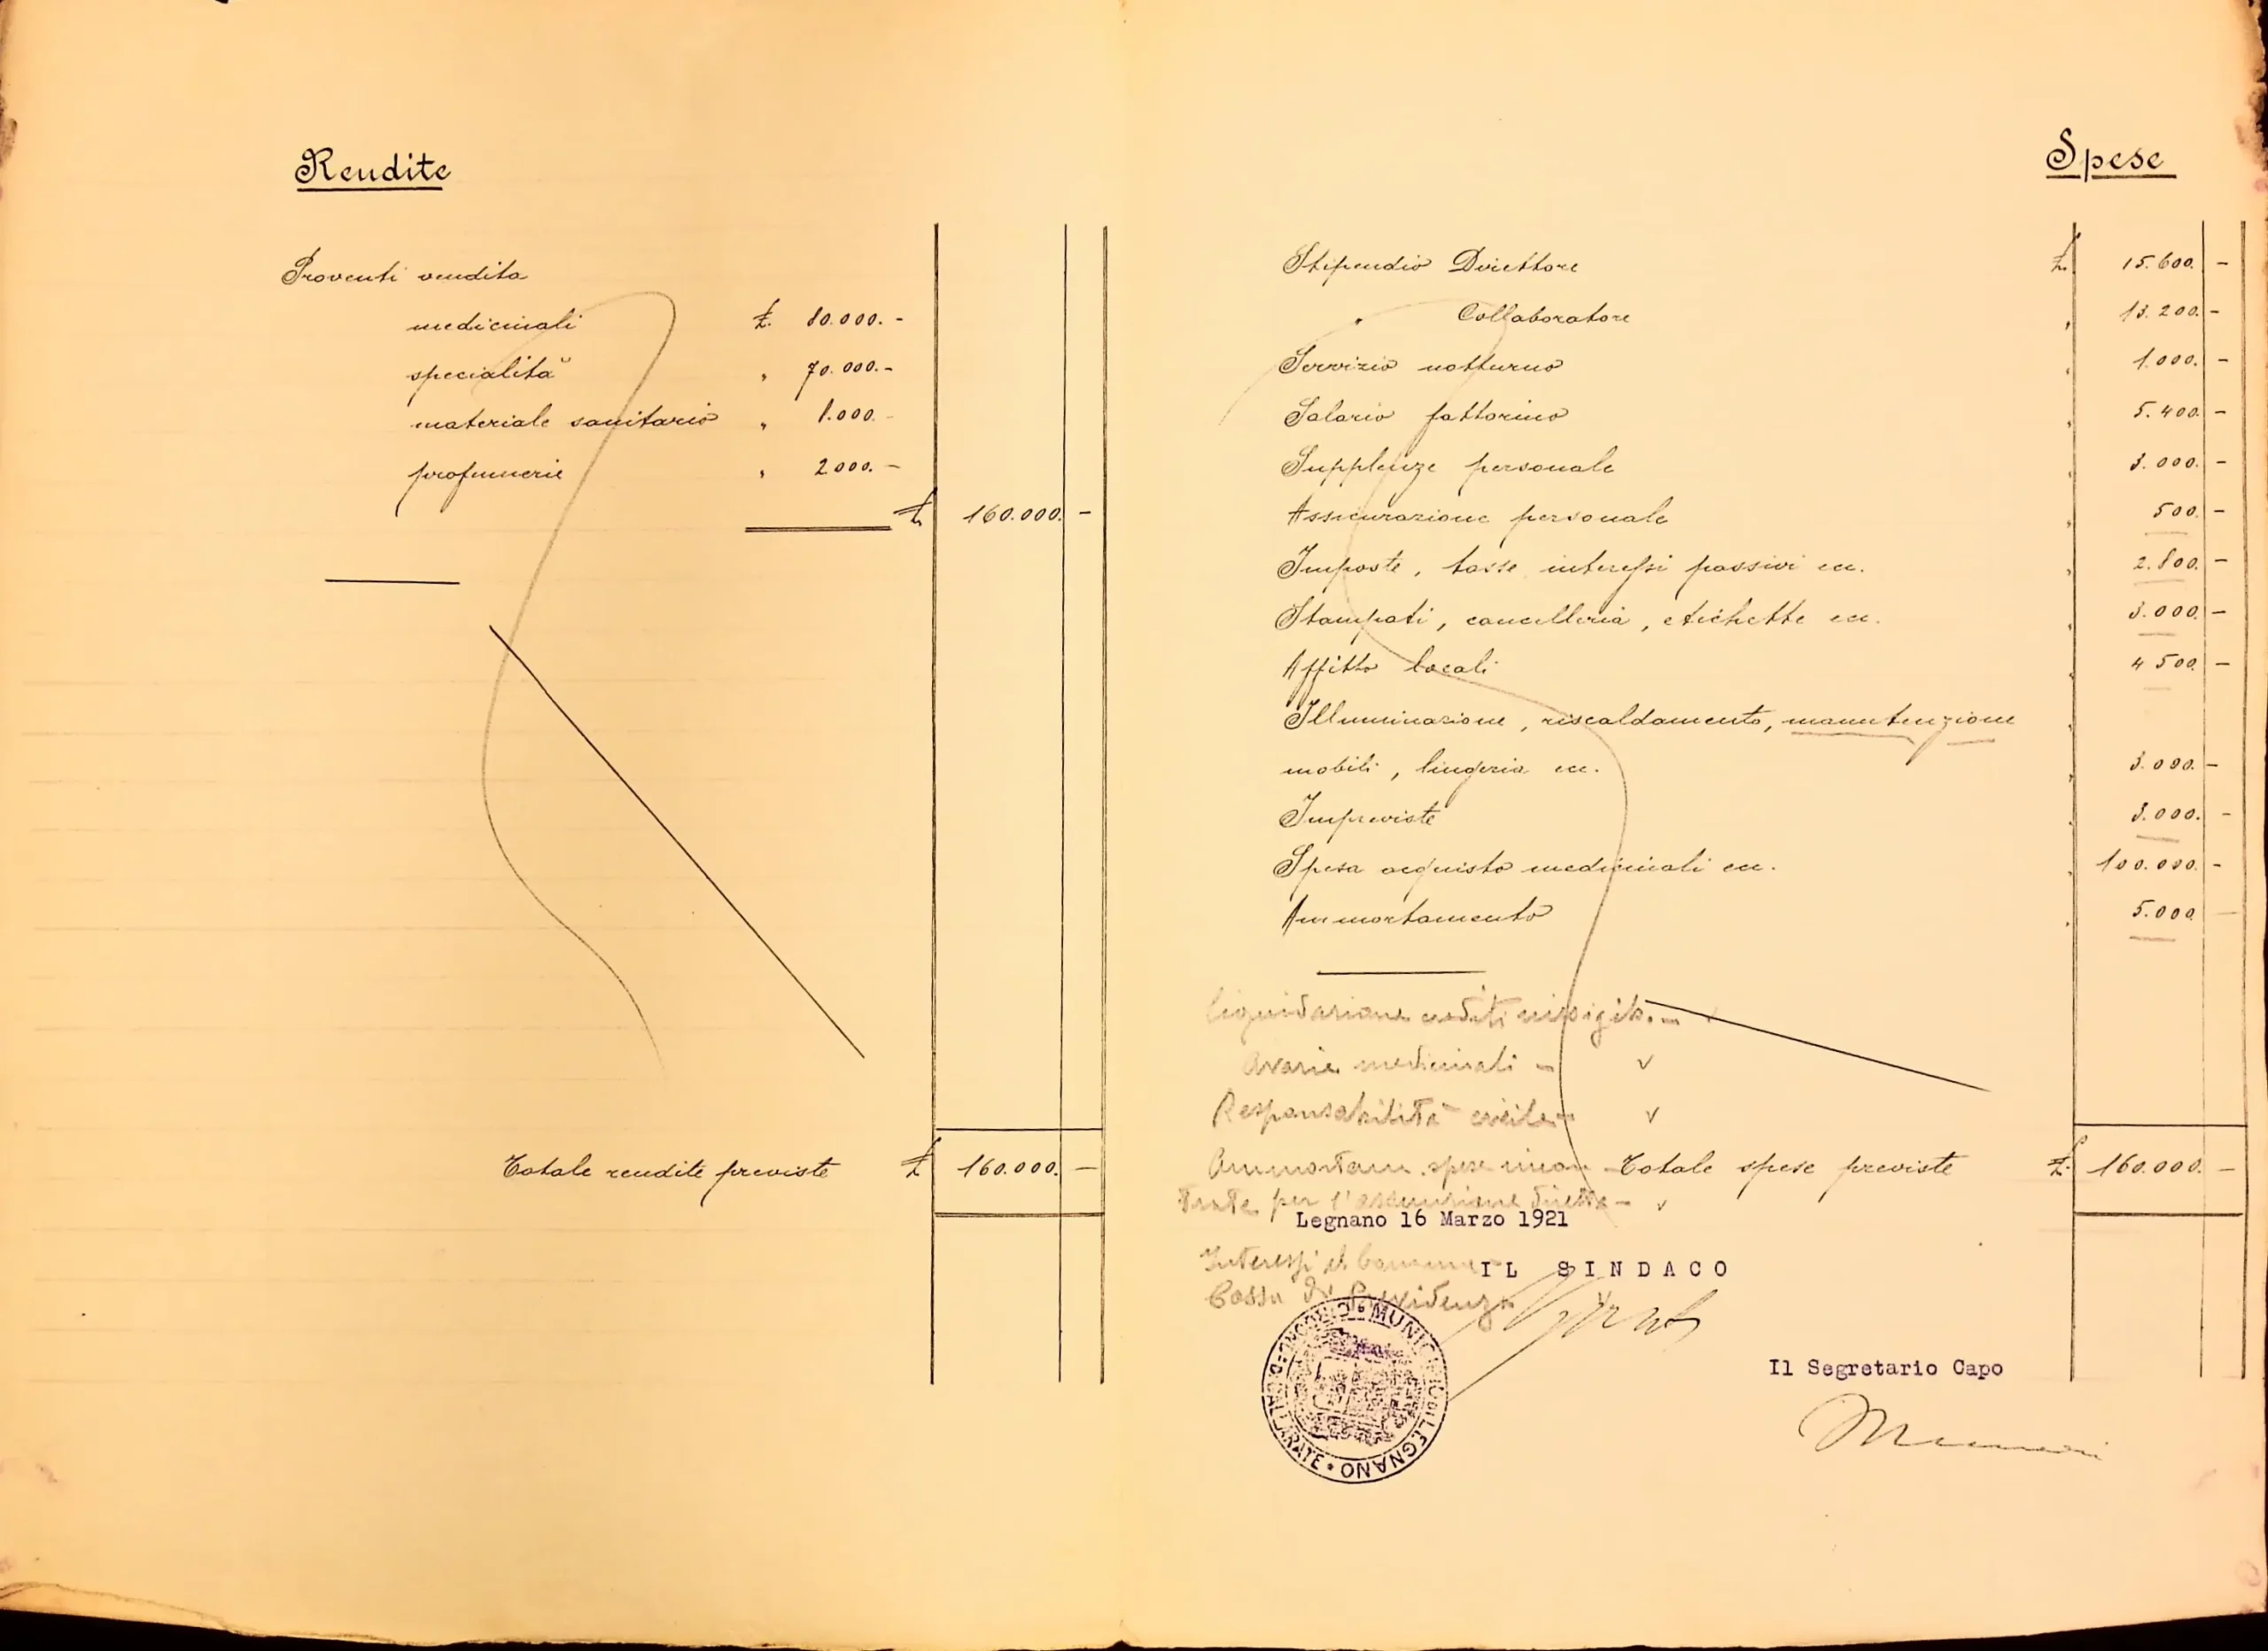 Rendite
Proventi vendita
medicinali £. 80.000.-
specialità " 70.000.-
materiale sanitario " 8.000.-
profumerie " 2000.-
£ 160.000.-
Totale rendite previste £ 160.000.-
Spese
Stipendio Direttore £. 15.600.-
" Collaboratore " 13.200.-
Servizio notturno " 1.000.-
Salario fattorino " 5.400.-
Supplenze personale " 3.000.-
Assicurazione personale " 500.-
Imposte, tasse interessi passivi ecc. " 2.800.-
Stampati, cancelleria, etichette ecc. " 3.000.-
Affitto locali " 4500.-
Illuminazione, riscaldamento, manutenzione "
mobili, lingeria ecc. " 3.000.-
Impreviste " 3.000.-
Spesa acquisto medicinali ecc. " 100.000.-
Ammortamento " 5.000 -
liquidazione crediti inesigib. -
Avarie medicinali - v
Responsabilità civile - v
Ammortam. spese incon
Totale spese previste £. 160.000.-
trate per l'assunzione diretta - v
Legnano 16 Marzo 1921
Interessi al Comune
IL SINDACO
Cassa di Previdenza
MUNICIPIO DI LEGNANO • CIRCOND. DI GALLARATE •
Il Segretario Capo